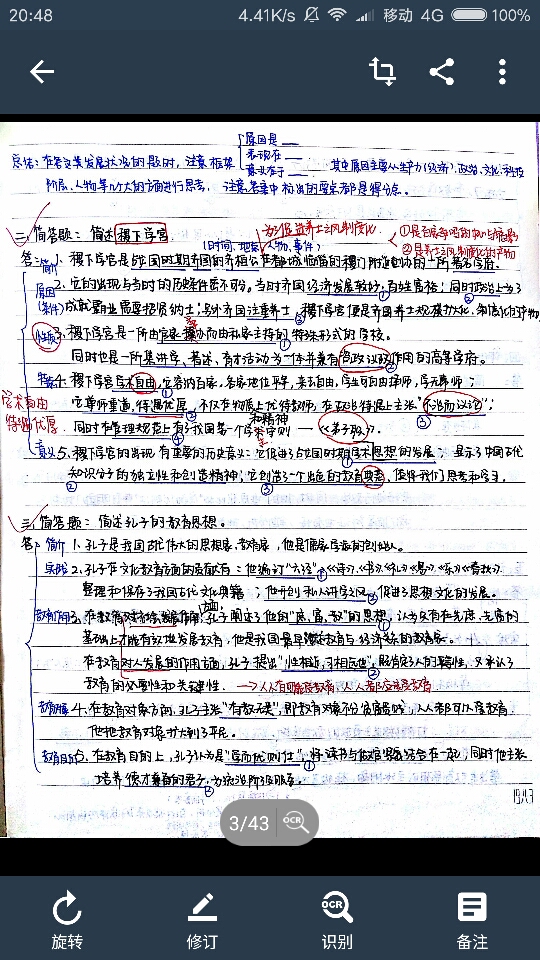 20:48 4.41K/s 移动 4G 100%
原因是
表现在
意义在于
总结:在答这类发展状况的题时,注意框架 其中原因主要从生产力(经济)、政治、文化、科技
阶层、人物等几个大的方面进行思考,注意答案中标出的要点都是得分点。
二、简答题:简述稷下学宫 (时间、地点、人物、事件)
②是养士之风制度化的产物
答:简介 1、稷下学宫是战国时期齐国的齐桓公在都城临淄的稷门附近创办的一所著名学府。
原因 2、它的出现与当时的历史条件密不可分。当时齐国经济发展较好,百姓富裕;同时政治上为了
(条件) 成就霸业而需招贤纳士;另外齐国注重养士,稷下学宫便是齐国养士
性质 3、稷下学宫是一所由官家操办而由私家主持的特殊形式的学校。
同时也是一所集讲学、著述、育才活动为一体并兼有咨政议政作用的高等学府。
特点 4、稷下学宫学术自由,它容纳百家,各家地位平等,来去自由,学生可自由择师,学无常师;
学术自由
待遇优厚
它尊师重道,待遇优厚,不仅在物质上优待教师,在政治待遇上主张“不治而议论”;
同时在管理规范上有了我国第一个学生守则——《弟子职》。
意义 5、稷下学宫的出现有重要的历史意义:它促进了战国时期思想的发展;显示了中国古代
知识分子的独立性和创造精神;它创造了一个出色的教育典范,值得我们思考和学习。
三、简答题:简述孔子的教育思想。
答:简介 1、孔子是我国古代伟大的思想家、教育家,他是儒家学派的创始人。
实践 2、孔子在文化教育方面的贡献有:他编订“六经”,《诗》《书》《礼》《易》《乐》《春秋》,
整理和保存了我国古代文化典籍;他开创私人讲学之风,促进了思想文化的发展。
3、在教育对社会发展方面,孔子阐述了他的“庶、富、教”的思想,认为只有在先庶、先富的
基础上才能有效地发展教育,他是我国最早论述教育与经济关系的教育家。
在教育对人发展的作用方面,孔子提出“性相近,习相远也”,
教育的必要性和关键性。→人人有可能受教育,人人都应该受教育
4、在教育对象方面,孔子主张“有教无类”,即教育对象不分贵贱,人人都可以受教育,
他把教育对象扩大到了平民。
教育目的 5、在教育目的上,孔子认为是“学而优则仕”,将读书与做官紧密结合在一起,同时他主张
培养德才兼备的君子,为统治阶级服务。
3/43 OCR
旋转 修订 识别 备注